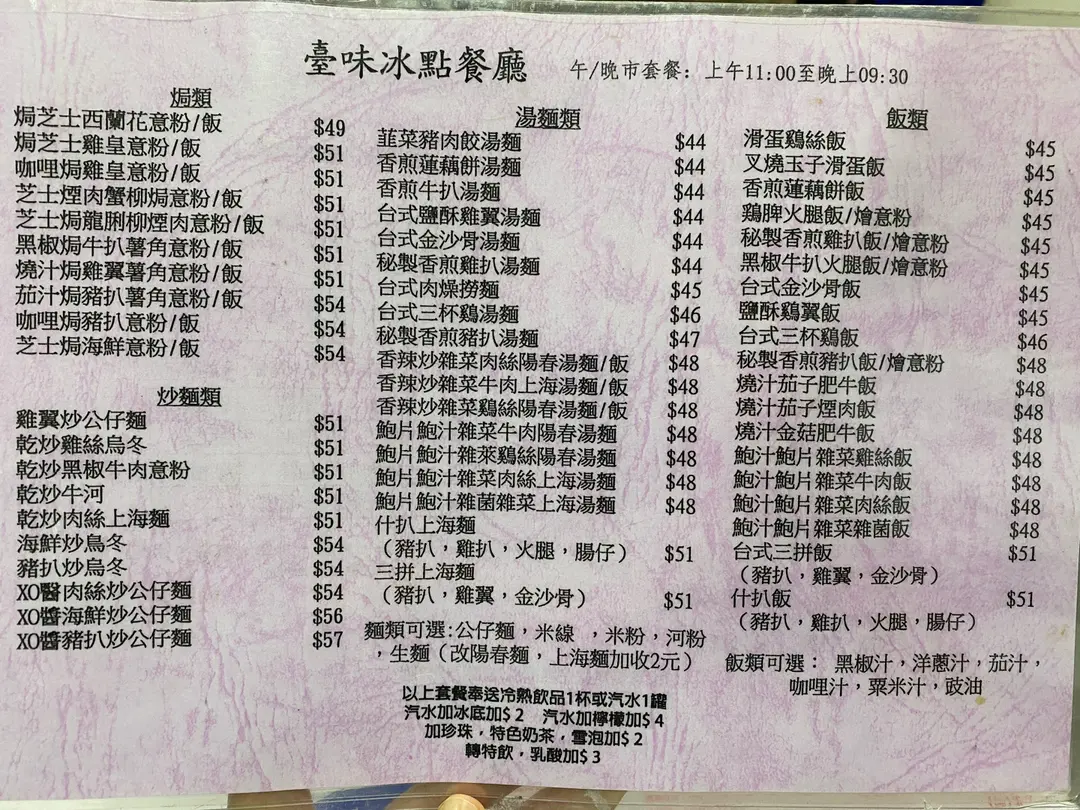 臺味冰點餐廳 午/晚市套餐：上午11:00至晚上09:30
焗類
焗芝士西蘭花意粉/飯 $49
焗芝士雞皇意粉/飯 $51
咖哩焗雞皇意粉/飯 $51
芝士煙肉蟹柳焗意粉/飯 $51
芝士焗龍脷柳煙肉意粉/飯 $51
黑椒焗牛扒薯角意粉/飯 $51
燒汁焗雞翼薯角意粉/飯 $51
茄汁焗豬扒薯角意粉/飯 $54
咖哩焗豬扒意粉/飯 $54
芝士焗海鮮意粉/飯 $54
炒麵類
雞翼炒公仔麵 $51
乾炒雞絲烏冬 $51
乾炒黑椒牛肉意粉 $51
乾炒牛河 $51
乾炒肉絲上海麵 $51
海鮮炒烏冬 $54
豬扒炒烏冬 $54
XO醫肉絲炒公仔麵 $54
XO醬海鮮炒公仔麵 $56
XO醬豬扒炒公仔麵 $57
湯麵類
韮菜豬肉餃湯麵 $44
香煎蓮藕餅湯麵 $44
香煎牛扒湯麵 $44
台式鹽酥雞翼湯麵 $44
台式金沙骨湯麵 $44
秘製香煎雞扒湯麵 $44
台式肉燥撈麵 $45
台式三杯鷄湯麵 $46
秘製香煎豬扒湯麵 $47
香辣炒雜菜肉絲陽春湯麵/飯 $48
香辣炒雜菜牛肉上海湯麵/飯 $48
香辣炒雜菜鷄絲陽春湯麵/飯 $48
鮑片鮑汁雜菜牛肉陽春湯麵 $48
鮑片鮑汁雜菜鷄絲陽春湯麵 $48
鮑片鮑汁雜菜肉絲上海湯麵 $48
鮑片鮑汁雜菌雜菜上海湯麵 $48
什扒上海麵
（豬扒，雞扒，火腿，腸仔） $51
三拼上海麵
（豬扒，雞翼，金沙骨） $51
麵類可選:公仔麵，米線 ，米粉，河粉
，生麵（改陽春麵，上海麵加收2元）
飯類
滑蛋鷄絲飯 $45
叉燒玉子滑蛋飯 $45
香煎蓮藕餅飯 $45
鶏脾火腿飯/燴意粉 $45
秘製香煎雞扒飯/燴意粉 $45
黑椒牛扒火腿飯/燴意粉 $45
台式金沙骨飯 $45
鹽酥鷄翼飯 $45
台式三杯鷄飯 $46
秘製香煎豬扒飯/燴意粉 $48
燒汁茄子肥牛飯 $48
燒汁茄子煙肉飯 $48
燒汁金菇肥牛飯 $48
鮑汁鮑片雜菜雞絲飯 $48
鮑汁鮑片雜菜牛肉飯 $48
鮑汁鮑片雜菜肉絲飯 $48
鮑汁鮑片雜菜雜菌飯 $48
台式三拼飯 $51
（豬扒，雞翼，金沙骨）
什扒飯 $51
（豬扒，雞扒，火腿，腸仔）
飯類可選： 黑椒汁，洋蔥汁，茄汁，
咖哩汁，粟米汁，豉油
以上套餐奉送冷熱飲品1杯或汽水1罐
汽水加冰底加$2 汽水加檸檬加$4
加珍珠，特色奶茶，雪泡加$2
轉特飲，乳酸加$3